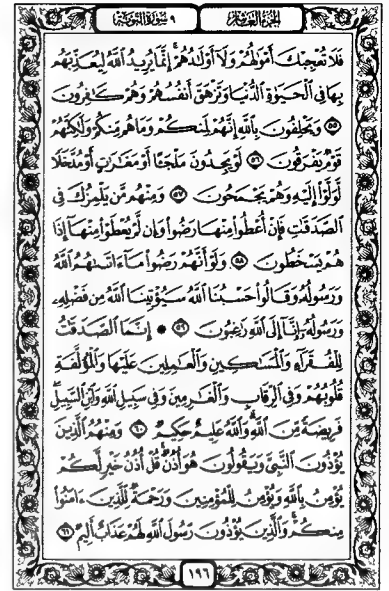 الجزء العاشر
٩ سورة التوبة
فَلَا تُعْجِبْكَ أَمْوَٰلُهُمْ وَلَآ أَوْلَٰدُهُمْ ۚ إِنَّمَا يُرِيدُ ٱللَّهُ لِيُعَذِّبَهُم
بِهَا فِى ٱلْحَيَوٰةِ ٱلدُّنْيَا وَتَزْهَقَ أَنفُسُهُمْ وَهُمْ كَٰفِرُونَ
٥٥ وَيَحْلِفُونَ بِٱللَّهِ إِنَّهُمْ لَمِنكُمْ وَمَا هُم مِّنكُمْ وَلَٰكِنَّهُمْ
قَوْمٌ يَفْرَقُونَ ٥٦ لَوْ يَجِدُونَ مَلْجَـًٔا أَوْ مَغَٰرَٰتٍ أَوْ مُدَّخَلًا
لَّوَلَّوْا۟ إِلَيْهِ وَهُمْ يَجْمَحُونَ ٥٧ وَمِنْهُم مَّن يَلْمِزُكَ فِى
ٱلصَّدَقَٰتِ فَإِنْ أُعْطُوا۟ مِنْهَا رَضُوا۟ وَإِن لَّمْ يُعْطَوْا۟ مِنْهَآ إِذَا
هُمْ يَسْخَطُونَ ٥٨ وَلَوْ أَنَّهُمْ رَضُوا۟ مَآ ءَاتَىٰهُمُ ٱللَّهُ
وَرَسُولُهُۥ وَقَالُوا۟ حَسْبُنَا ٱللَّهُ سَيُؤْتِينَا ٱللَّهُ مِن فَضْلِهِۦ
وَرَسُولُهُۥٓ إِنَّآ إِلَى ٱللَّهِ رَٰغِبُونَ ٥٩ ۞ إِنَّمَا ٱلصَّدَقَٰتُ
لِلْفُقَرَآءِ وَٱلْمَسَٰكِينِ وَٱلْعَٰمِلِينَ عَلَيْهَا وَٱلْمُؤَلَّفَةِ
قُلُوبُهُمْ وَفِى ٱلرِّقَابِ وَٱلْغَٰرِمِينَ وَفِى سَبِيلِ ٱللَّهِ وَٱبْنِ ٱلسَّبِيلِ ۖ
فَرِيضَةً مِّنَ ٱللَّهِ ۗ وَٱللَّهُ عَلِيمٌ حَكِيمٌ ٦٠ وَمِنْهُمُ ٱلَّذِينَ
يُؤْذُونَ ٱلنَّبِىَّ وَيَقُولُونَ هُوَ أُذُنٌ ۚ قُلْ أُذُنُ خَيْرٍ لَّكُمْ
يُؤْمِنُ بِٱللَّهِ وَيُؤْمِنُ لِلْمُؤْمِنِينَ وَرَحْمَةٌ لِّلَّذِينَ ءَامَنُوا۟
مِنكُمْ ۚ وَٱلَّذِينَ يُؤْذُونَ رَسُولَ ٱللَّهِ لَهُمْ عَذَابٌ أَلِيمٌ ٦١
١٩٦